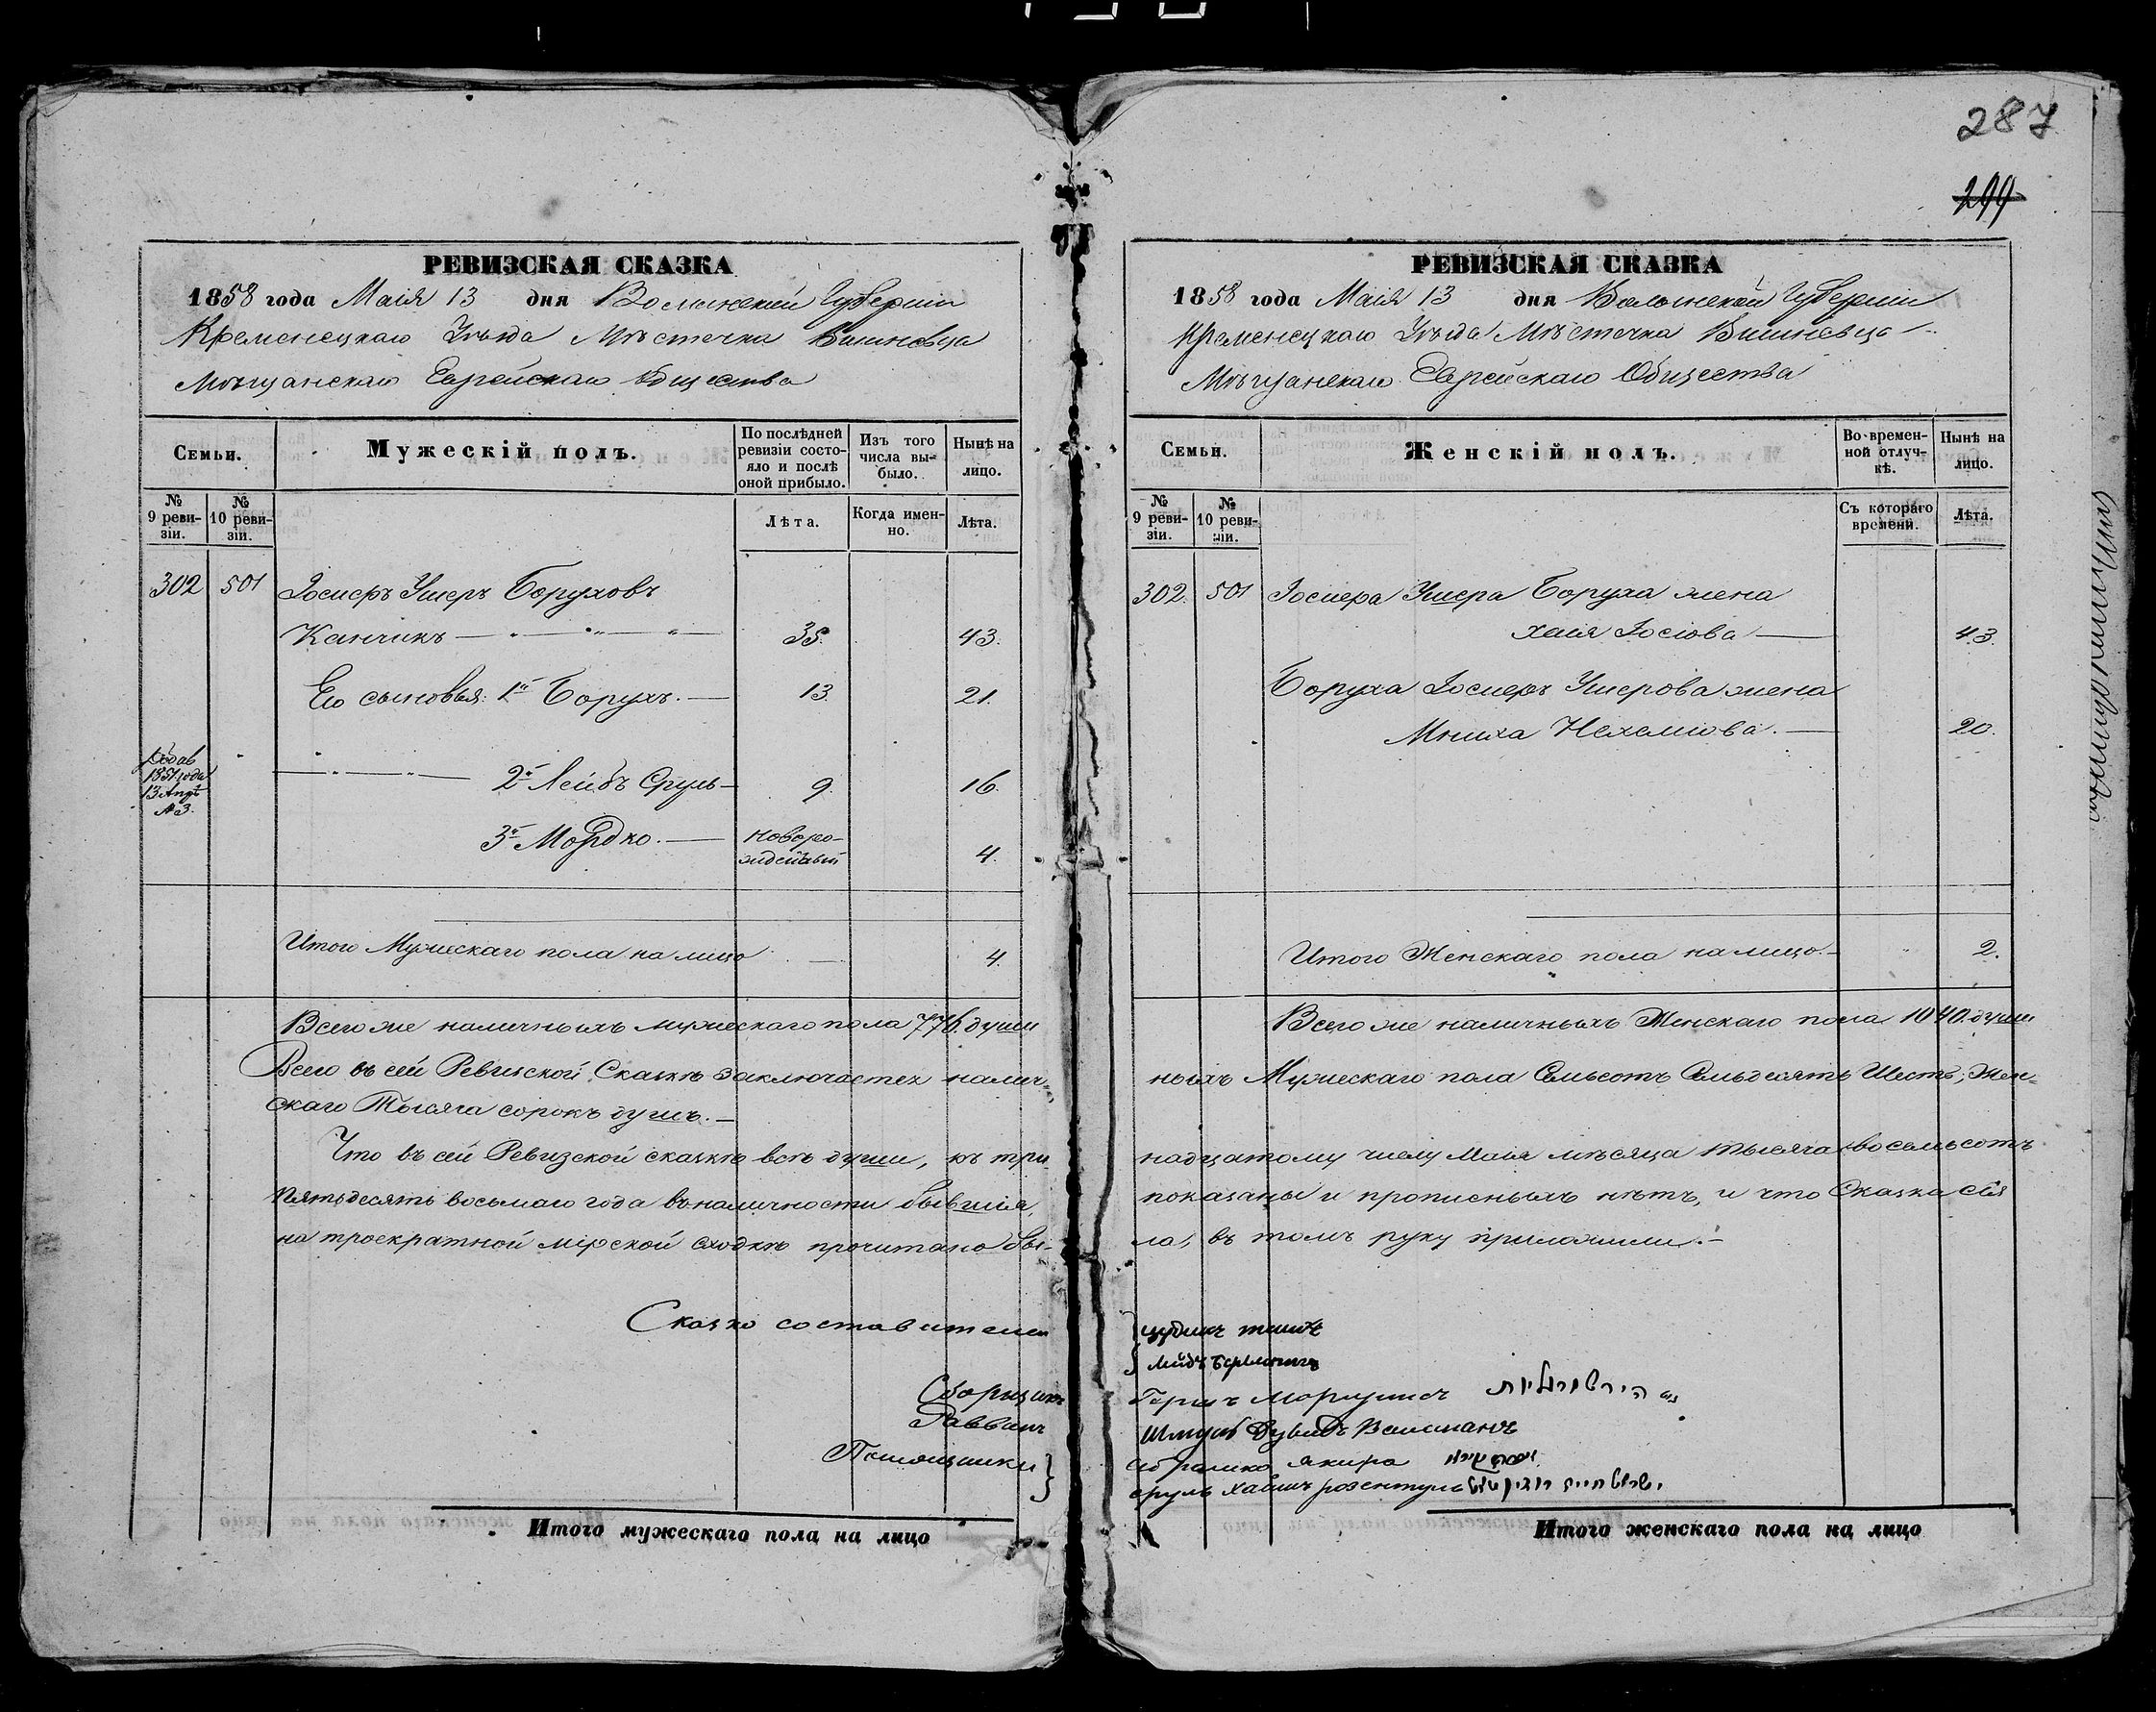 287
299
РЕВИЗСКАЯ СКАЗКА
1858 года Маія 13 дня Волынской Губерніи
Кременецкаго Уѣзда Мѣстечка Вишневца
Мѣщанскаго Еврейскаго Общества
Семьи.
Мужескій полъ.
По послѣдней ревизіи состояло и послѣ оной прибыло.
Изъ того числа выбыло.
Нынѣ на лицо.
№ 9 ревизіи.
№ 10 ревизіи.
Лѣта.
Когда именно.
Лѣта.
302 501 Іосиеръ Ушеръ Боруховъ
Канчикъ 35. 43.
Его сыновья: 1й Борухъ. 13. 21.
1851 года
13 Апр
№3.
2й Лейбъ Сруль 9. 16.
3й Мордко. новорожденный 4.
Итого Мужескаго пола на лицо 4.
Всего же наличныхъ мужескаго пола 776. души
Всего въ сей Ревизской Сказкѣ заключается налич-
скаго Тысяча сорокъ душъ.
Что въ сей Ревизской сказкѣ всѣ души, къ три
пятьдесятъ восьмаго года въ наличности бывшія,
на троекратной мірской сходкѣ прочитано бы-
Сказко составители
Сборщикъ
Раввинъ
Помощники
Итого мужескаго пола на лицо
РЕВИЗСКАЯ СКАЗКА
1858 года Маія 13 дня Волынской Губерніи
Кременецкаго Уѣзда Мѣстечка Вишневца
Мѣщанскаго Еврейскаго Общества
Семьи.
Женскій полъ.
Во временной отлучкѣ.
Нынѣ на лицо.
№ 9 ревизіи.
№ 10 ревизіи.
Съ котораго времени.
Лѣта.
302. 501 Іосиера Ушера Боруха жена
Хаія Іосіова 43.
Боруха Іосиеръ Ушерова жена
Мниха Нехеміова. 20.
Итого Женскаго пола на лицо. 2.
Всего же наличныхъ Женскаго пола 1040. души
ныхъ Мужескаго пола Семьсотъ Семьдесятъ Шесть, Жен-
надцатому числу Маія мѣсяца тысяча восемьсотъ
показаны и прописныхъ нѣтъ, и что Сказка сія
ла, въ томъ руку приложили.
Лейбъ
Гершъ
Шмуль Дувидъ Вайсманъ
Абрамко Якира
Сруль Хаимъ Розентуль
Итого женскаго пола на лицо